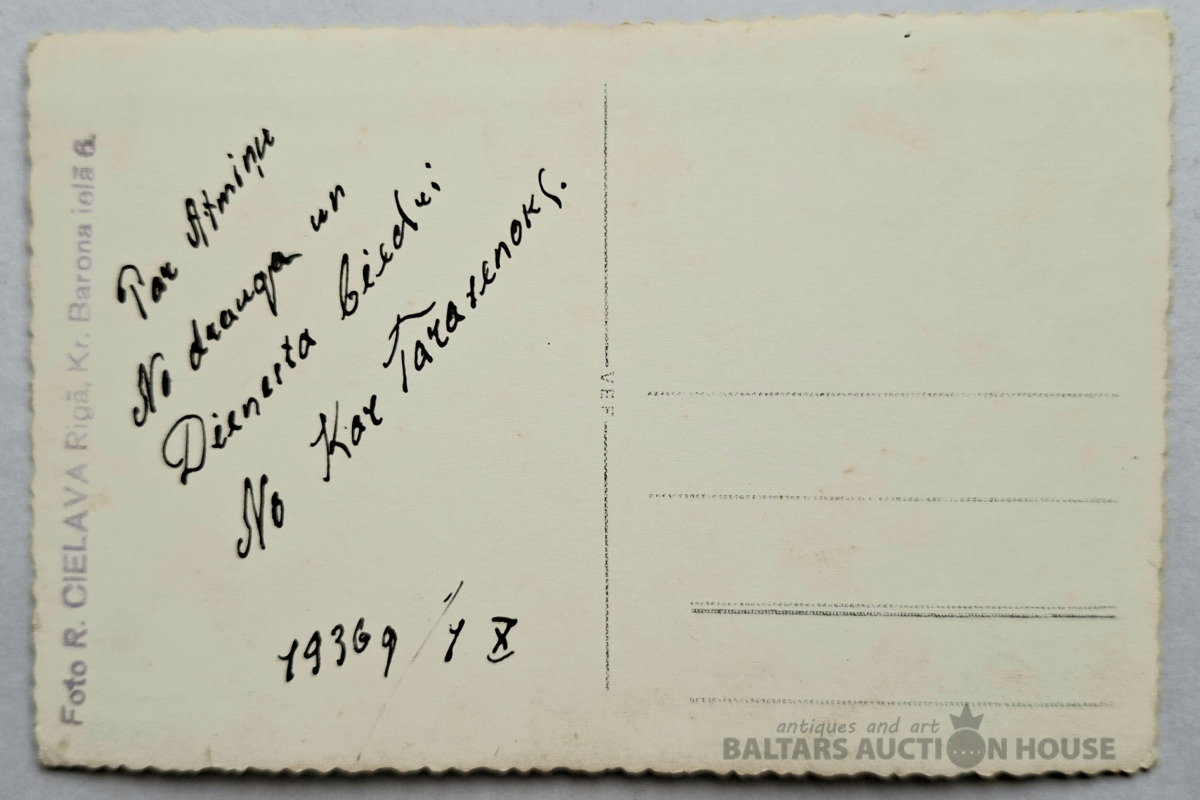 Foto R. CIELAVA Rīgā, Kr. Barona ielā 6.
Par Atmiņu
No drauga un
Dienesta biedri
No Kar Tararenoks.
1936 g / 1 X
VEF
antiques and art
BALTARS AUCTION HOUSE